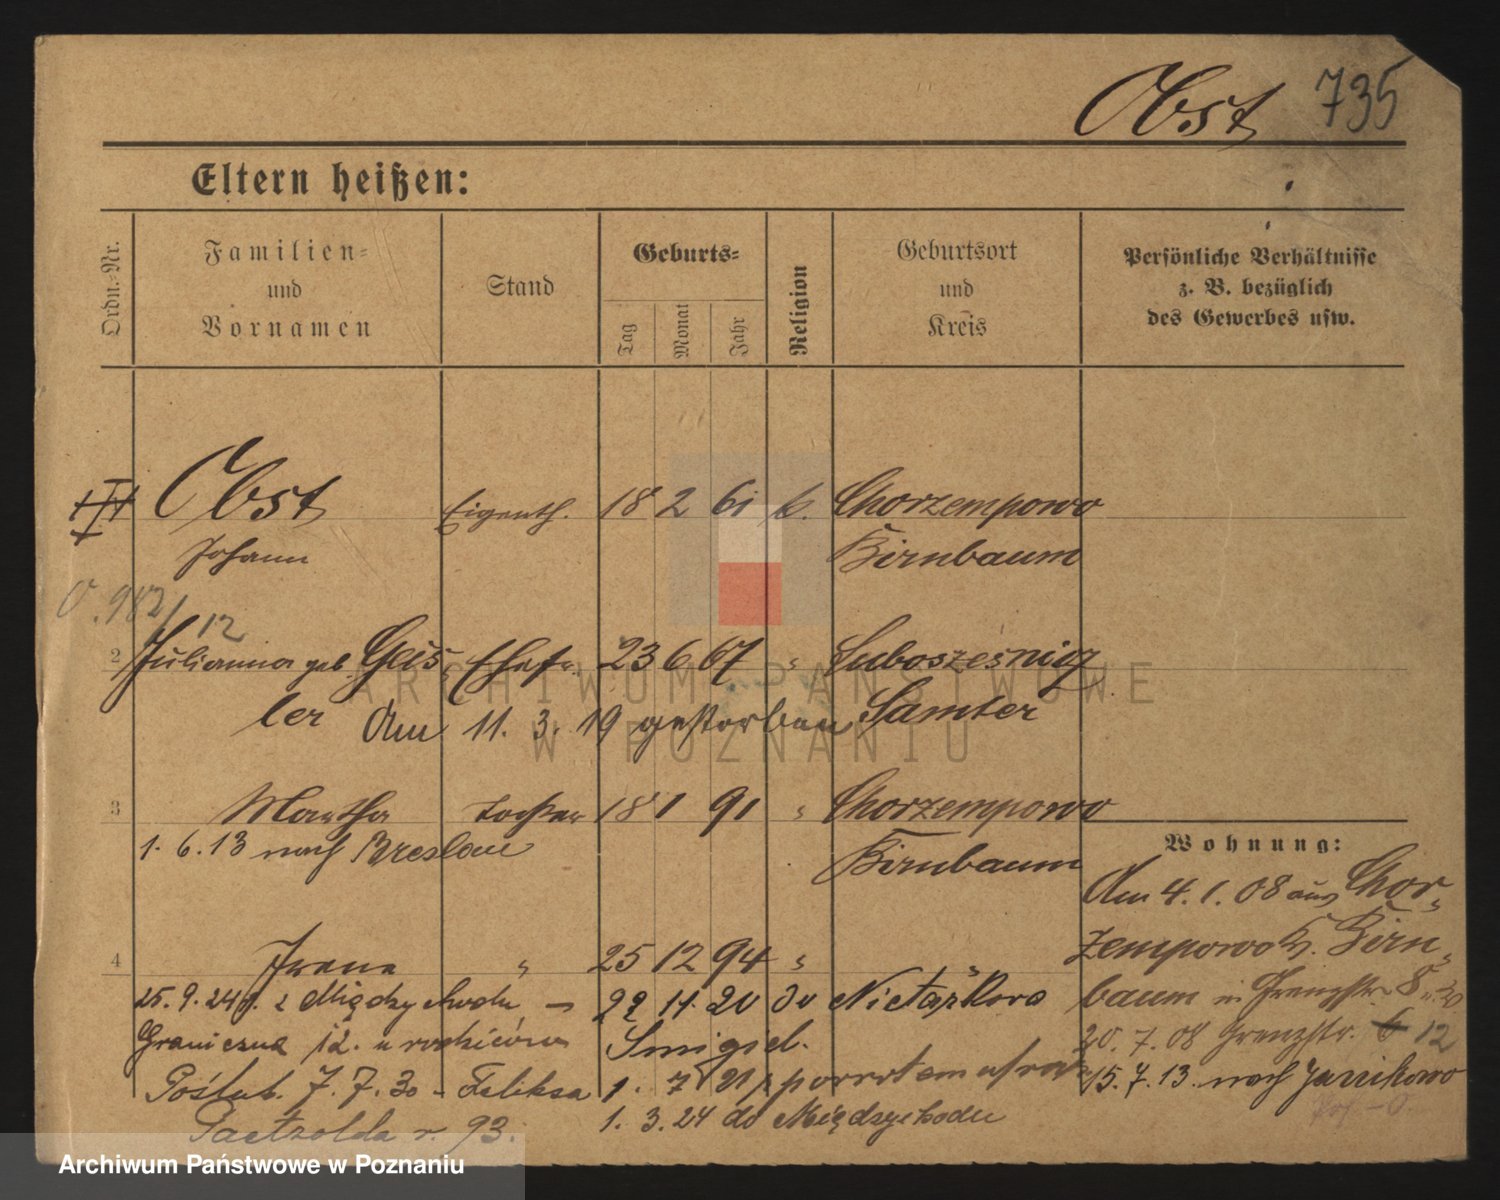 Obst 735
Eltern heißen:
Ordn.-Nr.
Familien- und Vornamen
Stand
Geburts-
Tag Monat Jahr
Religion
Geburtsort und Kreis
Persönliche Verhältnisse z. B. bezüglich des Gewerbes usw.
Obst Eigenth. 18 2 61 k. Chorzempowo
Johann Birnbaum
2 Julianna geb. Geis- Ehefr. 23 6 67 " Luboszesnica
ler Am 11. 3. 19 gestorben Samter
3 Martha Tochter 18 1 91 " Chorzempowo
1. 6. 13 nach Breslau Birnbaum
4 Irena " 25 12 94 "
25. 9. 24 z Międzychodu 22 11 20 do Nietążkowo
Graniczna 12. u rodziców Smigiel.
Poślub. 7. 7. 30 - Feliksa 1. 7 21
Paetzolda r. 93. 1. 3. 24 do Międzychodu
Wohnung:
Am 4. 1. 08 aus Chor-
zempowo K. Birn-
baum in Grenzstr. 8
20. 7. 08 Grenzstr. 6 12
15. 7. 13. nach Janikowo
ARCHIWUM PAŃSTWOWE
W POZNANIU
Archiwum Państwowe w Poznaniu